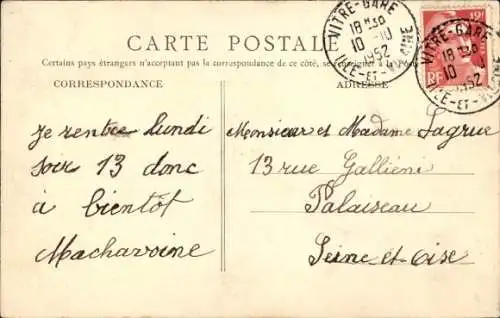 CARTE POSTALE
Certains pays étrangers n'acceptant pas la correspondance de ce côté, se renseigner à la Poste
CORRESPONDANCE
ADRESSE
Je rentre lundi
soir 13 donc
à bientôt
Machavoine
Monsieur et Madame Lagrue
13 rue Gallieni
Palaiseau
Seine-et-Oise
VITRE-GARE
18 H 30
10 -10
1952
ILLE-ET-VILAINE
VITRE-GARE
18 H 30
10
1952
ILLE-ET-VILAINE
RF